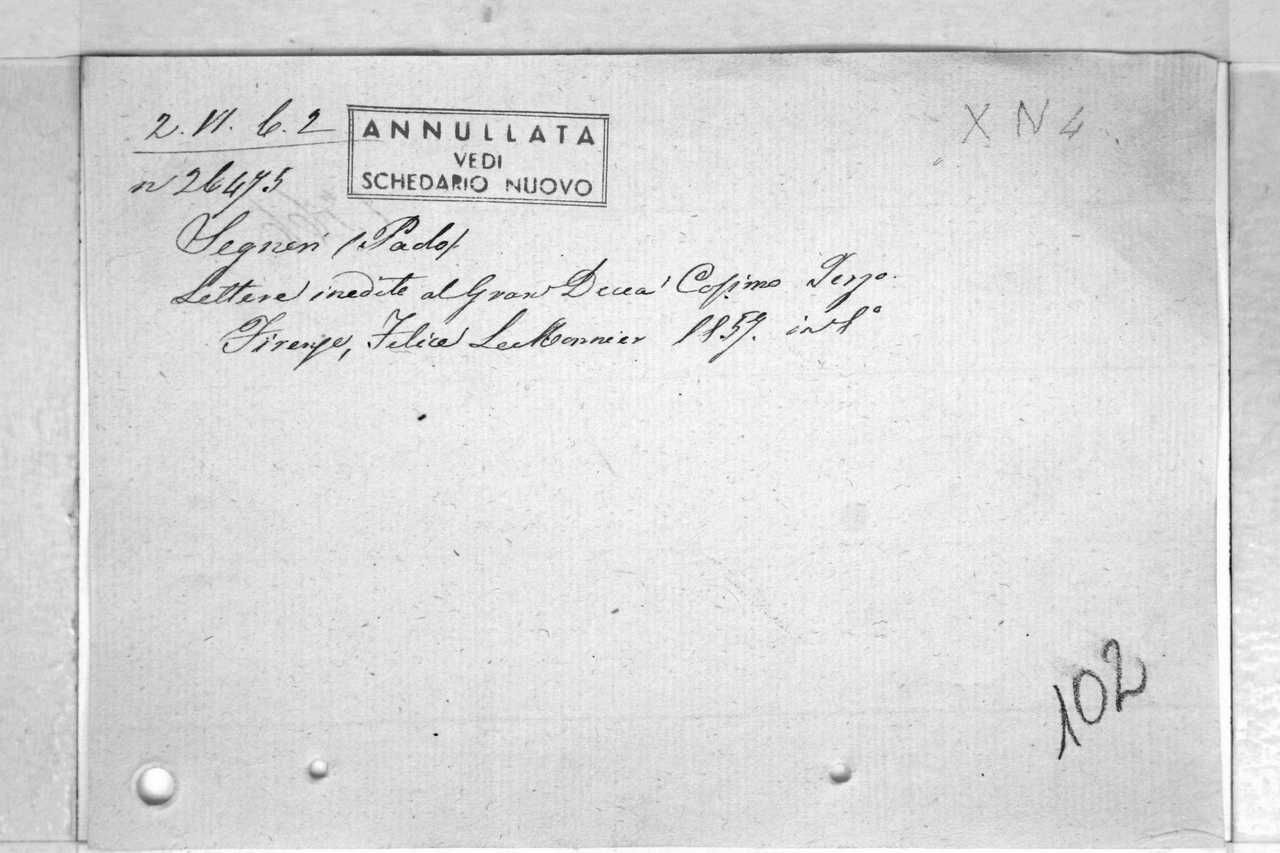 2. VI. C. 2
ANNULLATA
VEDI
SCHEDARIO NUOVO
X N 4
n 26475
Segneri (Paolo)
Lettere inedite al Gran Duca Cosimo Terzo.
Firenze, Felice Le Monnier 1857. in 8°
102